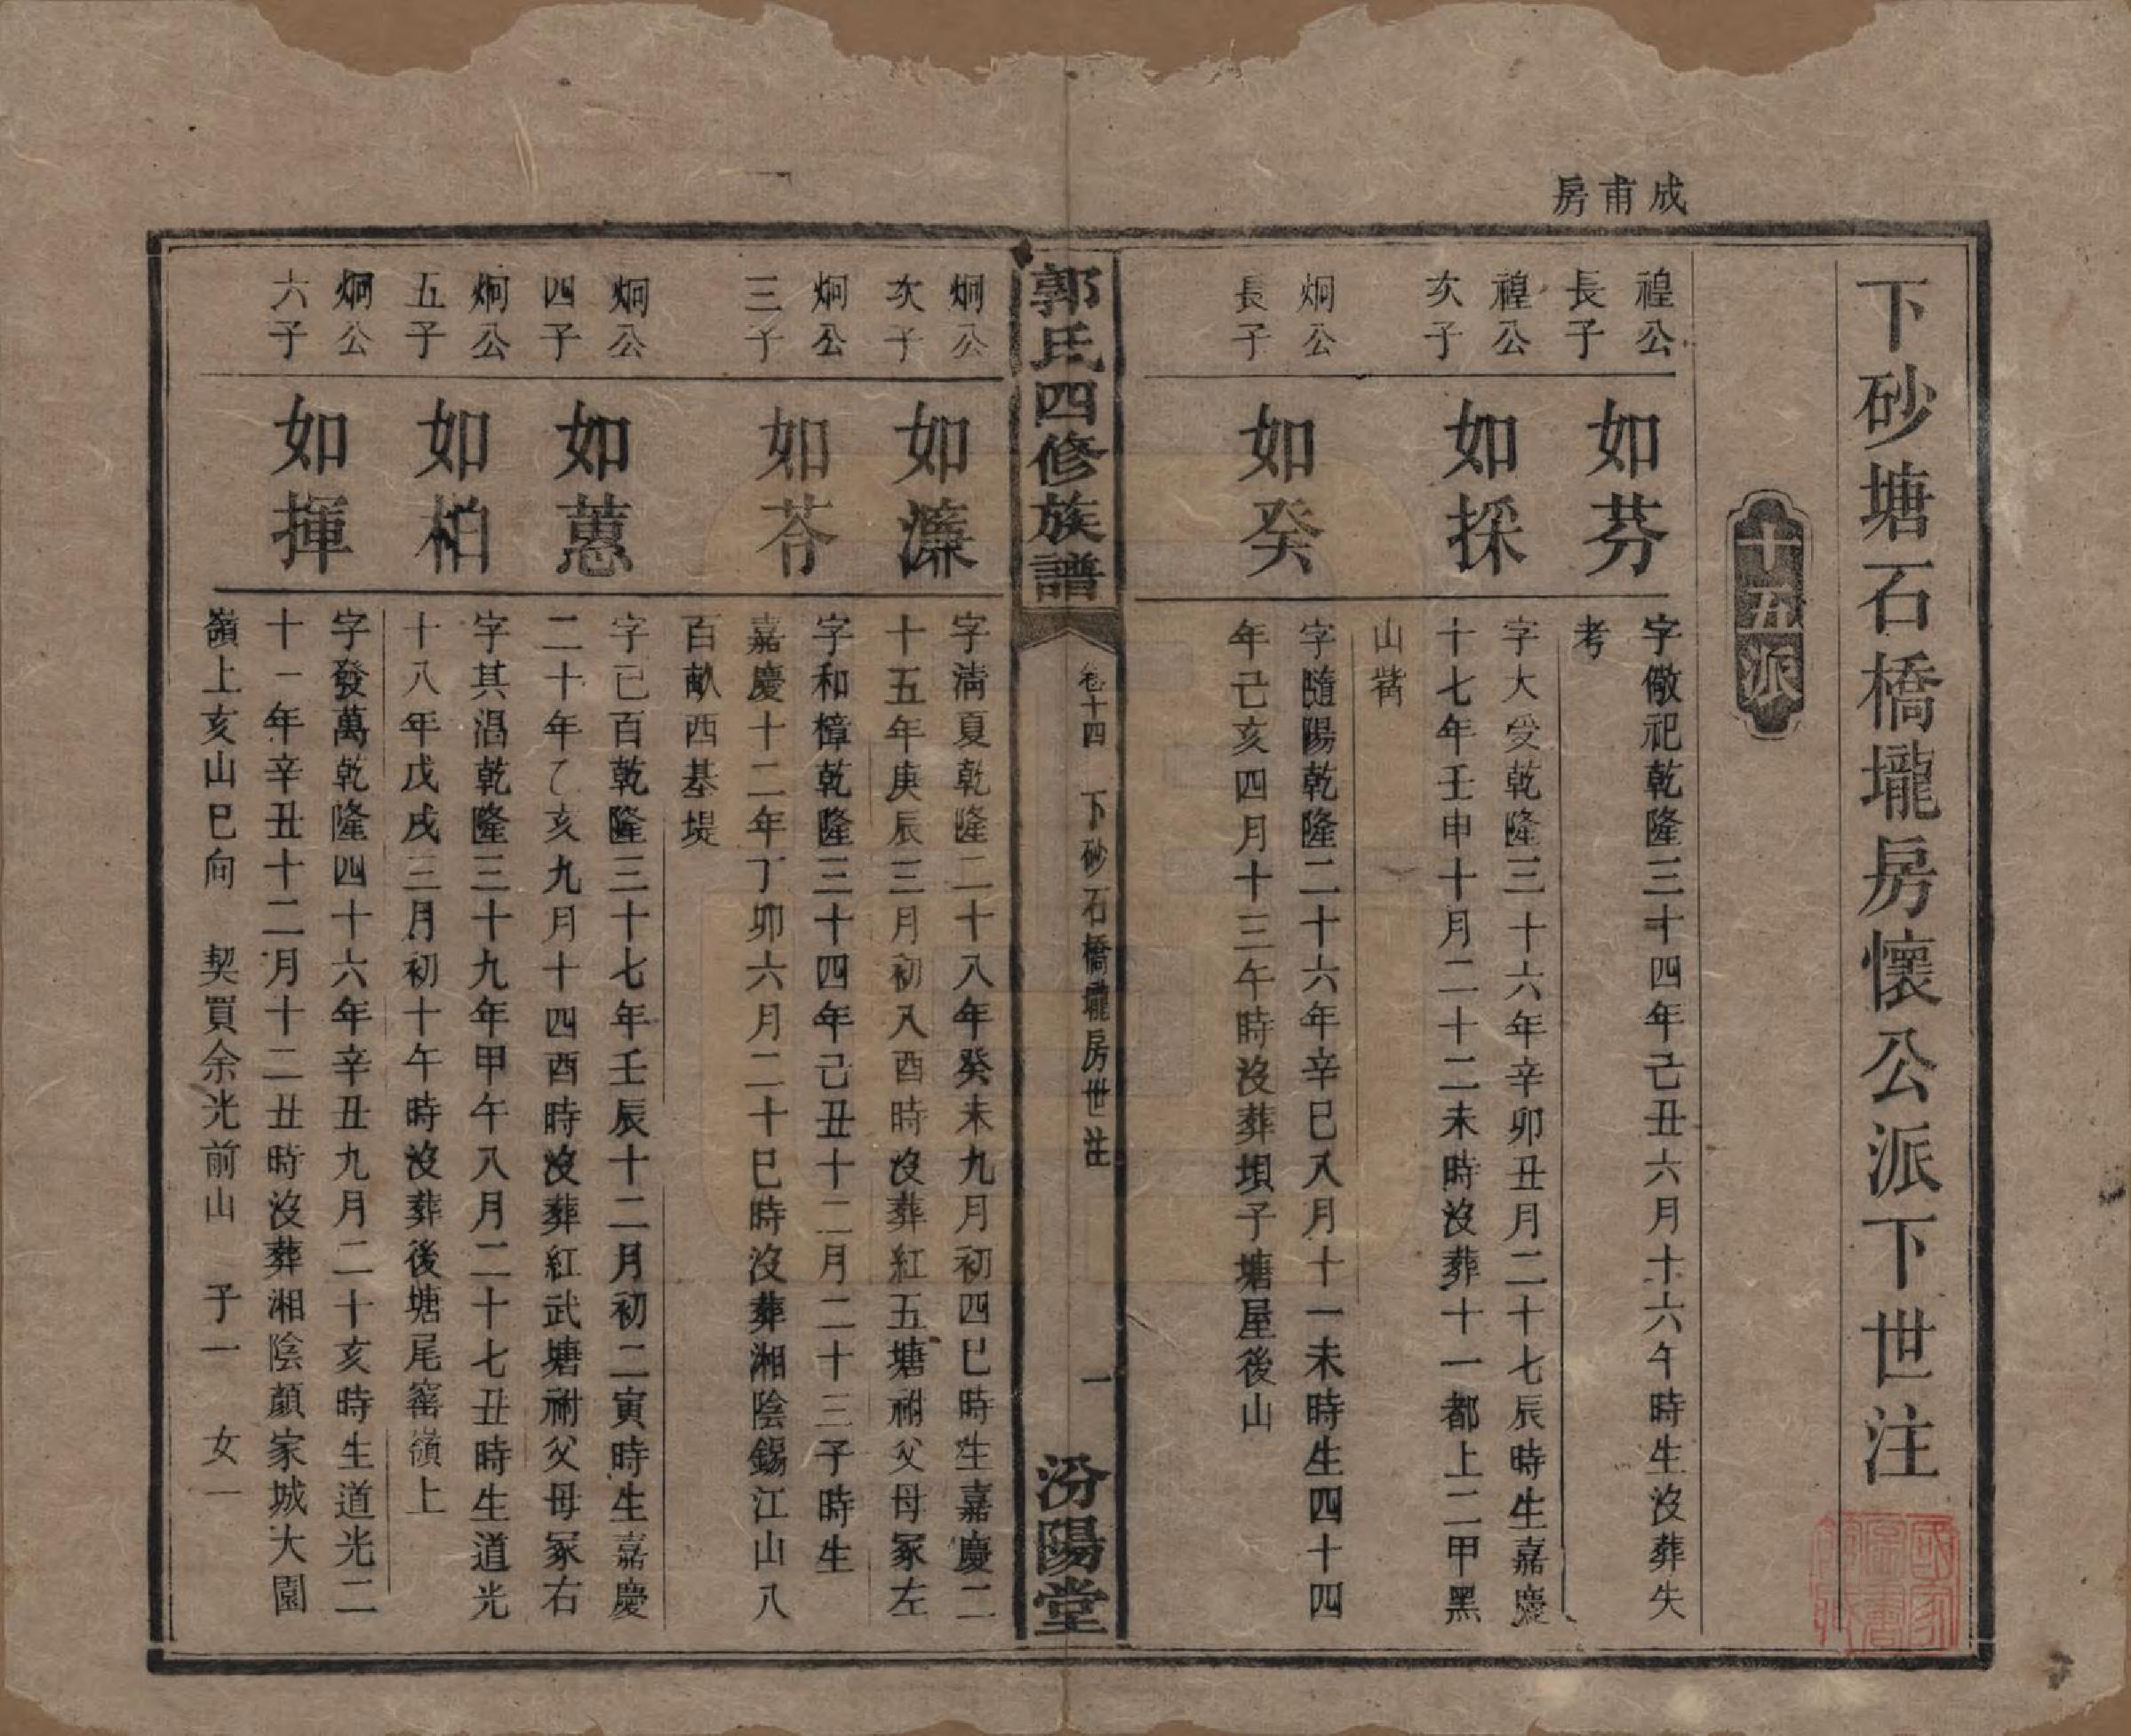 成甫房
下砂塘石橋壠房懷公派下世注
十五派
禋公
長子
如芬
字儆祀乾隆三十四年己丑六月十六午時生沒葬失
考
禋公
次子
如採
字大受乾隆三十六年辛卯丑月二十七辰時生嘉慶
十七年壬申十月二十二未時沒葬十一都上二甲黑
山嘴
炯公
長子
如癸
字隨陽乾隆二十六年辛巳八月十一未時生四十四
年己亥四月十三午時沒葬垻子塘屋後山
郭氏四修族譜
卷十四 下砂石橋壠房世注
一
汾陽堂
炯公
次子
如濂
字清夏乾隆二十八年癸未九月初四巳時生嘉慶二
十五年庚辰三月初八酉時沒葬紅五塘祔父母冢左
炯公
三子
如苻
字和樟乾隆三十四年己丑十二月二十三子時生
嘉慶十二年丁卯六月二十巳時沒葬湘陰錫江山八
百畝西基堤
炯公
四子
如蕙
字已百乾隆三十七年壬辰十二月初二寅時生嘉慶
二十年乙亥九月十四酉時沒葬紅武塘祔父母冢右
炯公
五子
如柏
字其濐乾隆三十九年甲午八月二十七丑時生道光
十八年戊戌三月初十午時沒葬後塘尾窰嶺上
炯公
六子
如揮
字發萬乾隆四十六年辛丑九月二十亥時生道光二
十一年辛丑十二月十二丑時沒葬湘陰顏家城大園
嶺上亥山巳向 契買余光前山 子一 女一